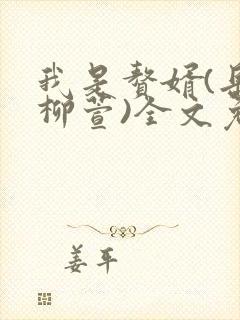 我是赘婿(
柳萱)全文
姜平